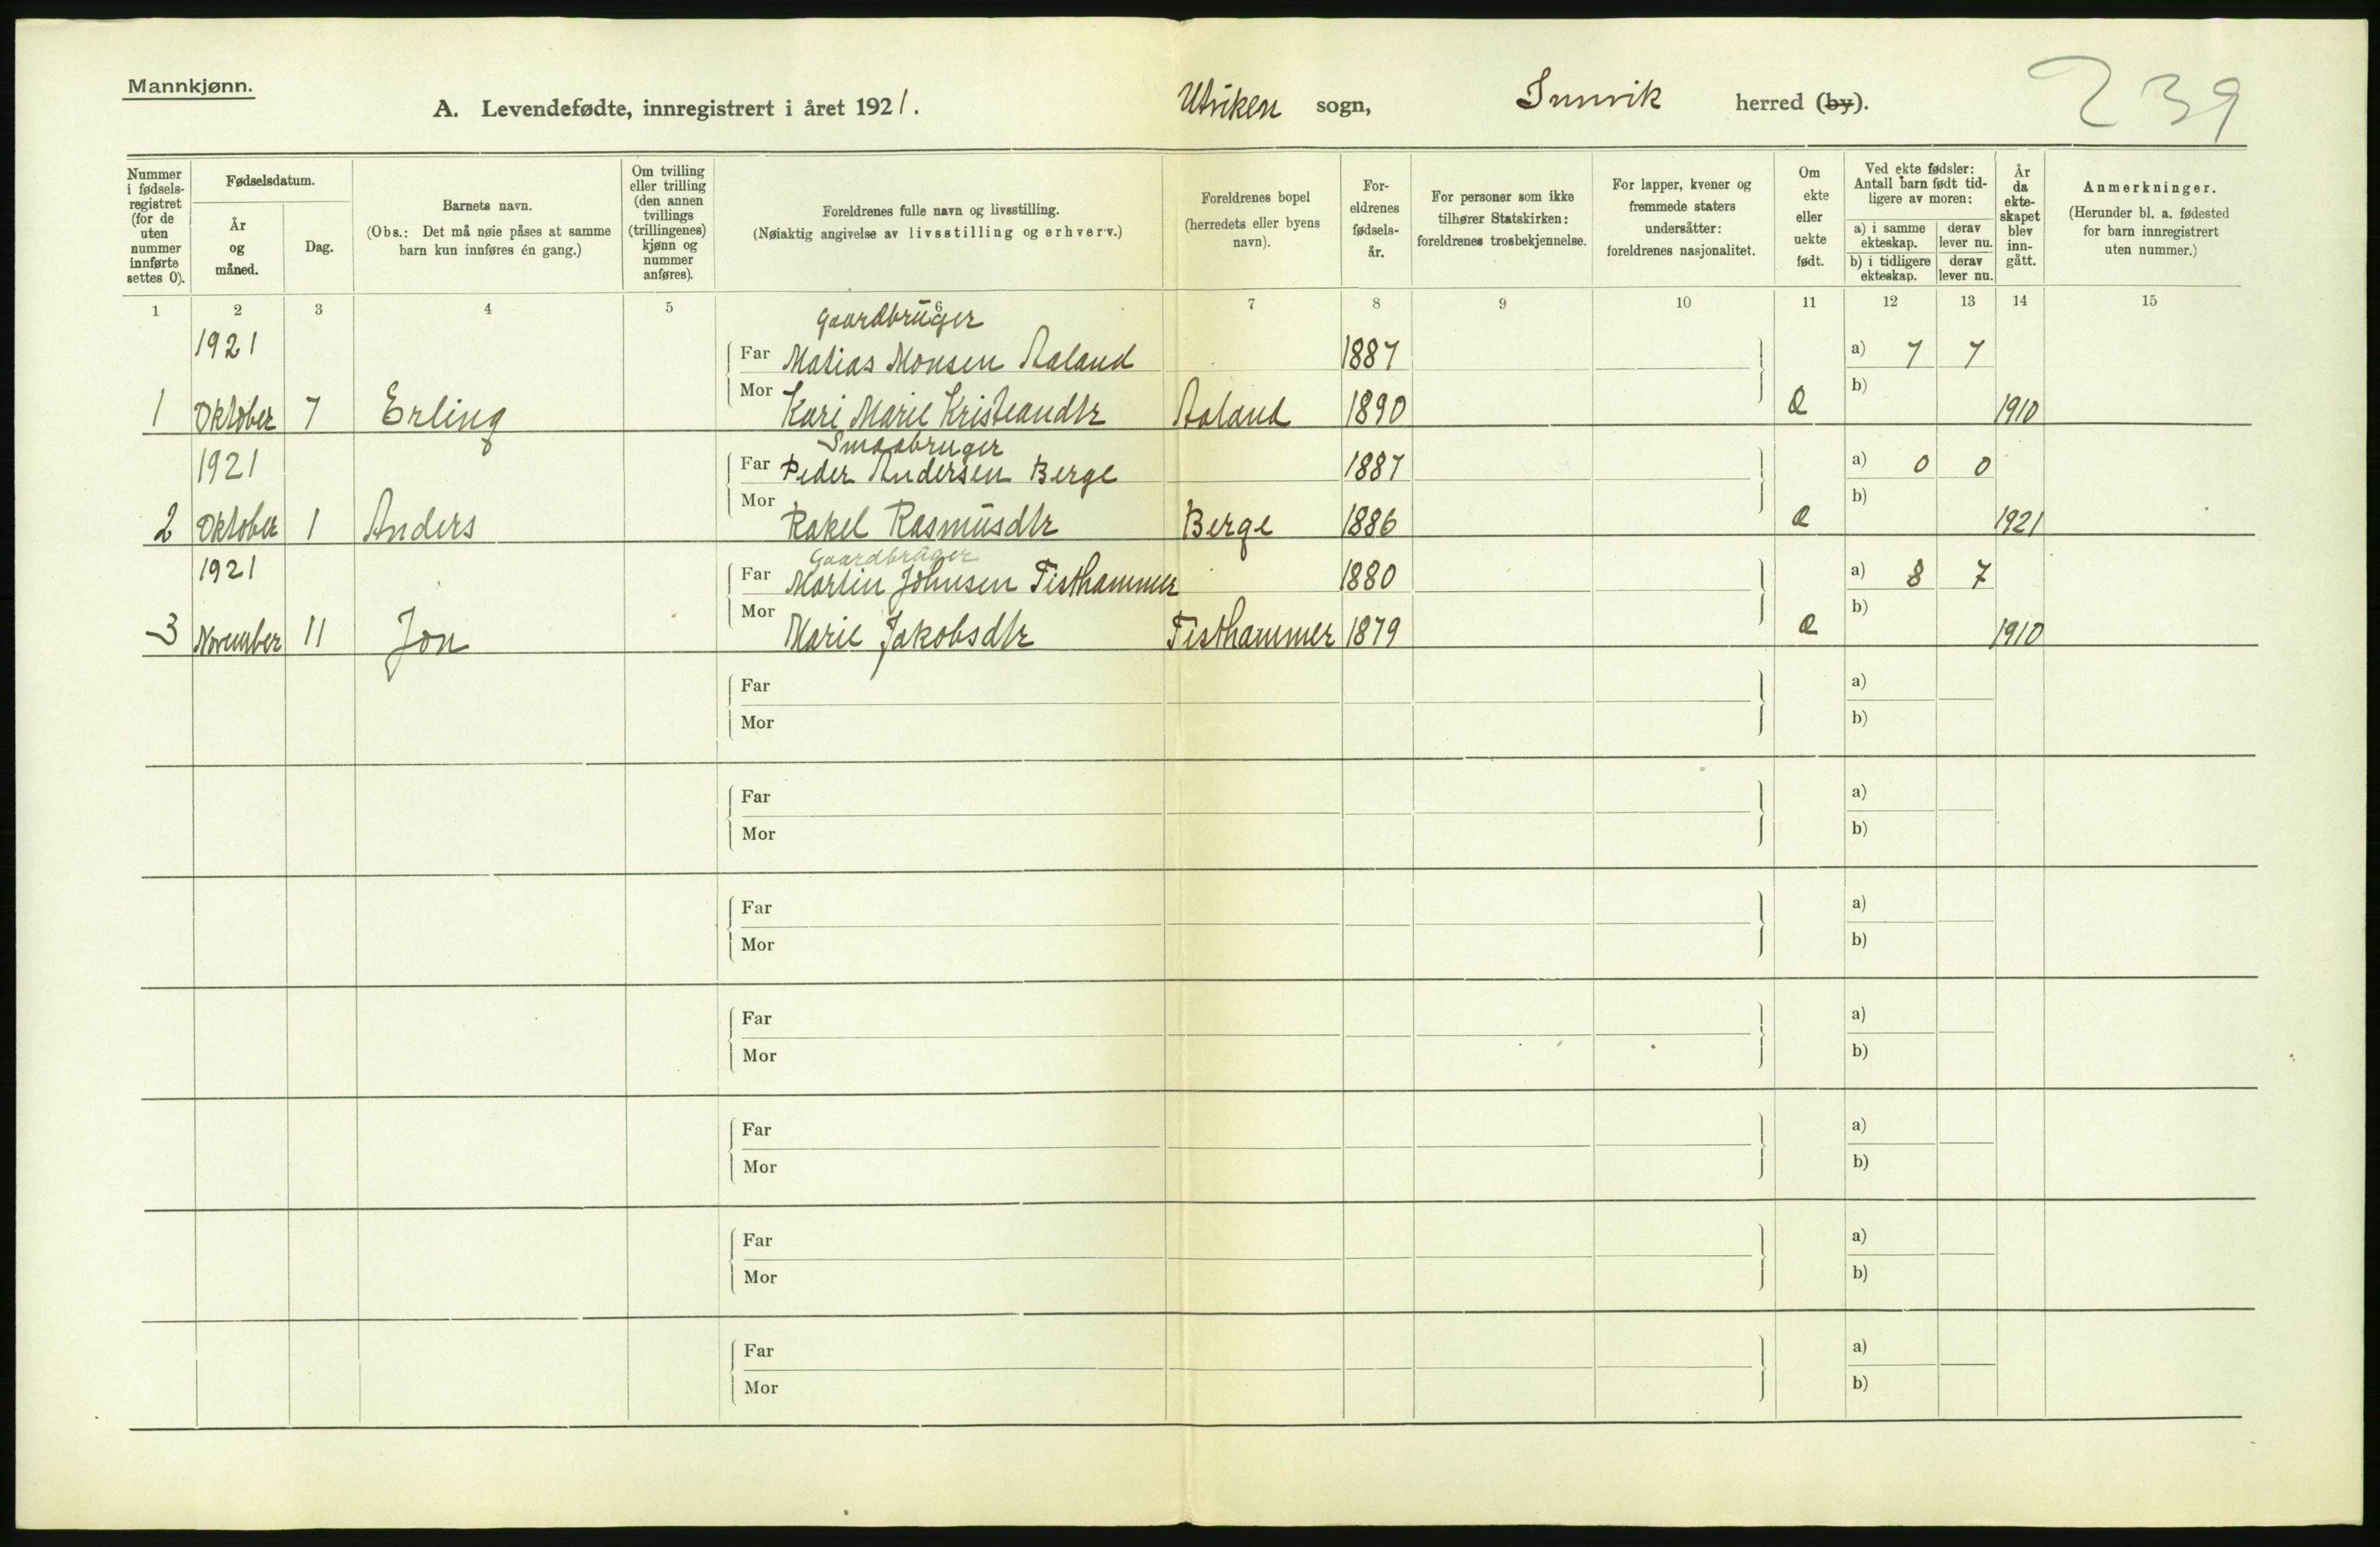 Mannkjønn.
A. Levendefødte, innregistrert i året 1921.
Utviken sogn, Innvik herred (by).
239
Nummer i fødsels-registret (for de uten nummer innførte settes 0).
Fødselsdatum.
År og måned.
Dag.
Barnets navn.
(Obs.: Det må nøie påses at samme barn kun innføres én gang.)
Om tvilling eller trilling (den annen tvillings (trillingenes) kjønn og nummer anføres).
Foreldrenes fulle navn og livsstilling.
(Nøiaktig angivelse av livsstilling og erhverv.)
Foreldrenes bopel
(herredets eller byens navn).
For-eldrenes fødsels-år.
For personer som ikke tilhører Statskirken: foreldrenes trosbekjennelse.
For lapper, kvener og fremmede staters undersåtter: foreldrenes nasjonalitet.
Om ekte eller uekte født.
Ved ekte fødsler: Antall barn født tid-ligere av moren:
a) i samme ekteskap.
derav lever nu.
b) i tidligere ekteskap.
derav lever nu.
År da ekte-skapet blev inn-gått.
Anmerkninger.
(Herunder bl. a. fødested for barn innregistrert uten nummer.)
1 2 3 4 5 6 7 8 9 10 11 12 13 14 15
Gaardbruger
1921 Far Matias Monsen Aaland 1887 a) 7 7
1 Oktober 7 Erling Mor Kari Marie Kristeandtr Aaland 1890 e b) 1910
Smaabruger
1921 Far Peder Andersen Berge 1887 a) 0 0
2 Oktober 1 Anders Mor Rakel Rasmusdtr Berge 1886 e b) 1921
Gaardbruger
1921 Far Martin Johnsen Tisthammer 1880 a) 8 7
3 November 11 Jon Mor Marie Jakobsdtr Tisthammer 1879 e b) 1910
Far a)
Mor b)
Far a)
Mor b)
Far a)
Mor b)
Far a)
Mor b)
Far a)
Mor b)
Far a)
Mor b)
Far a)
Mor b)